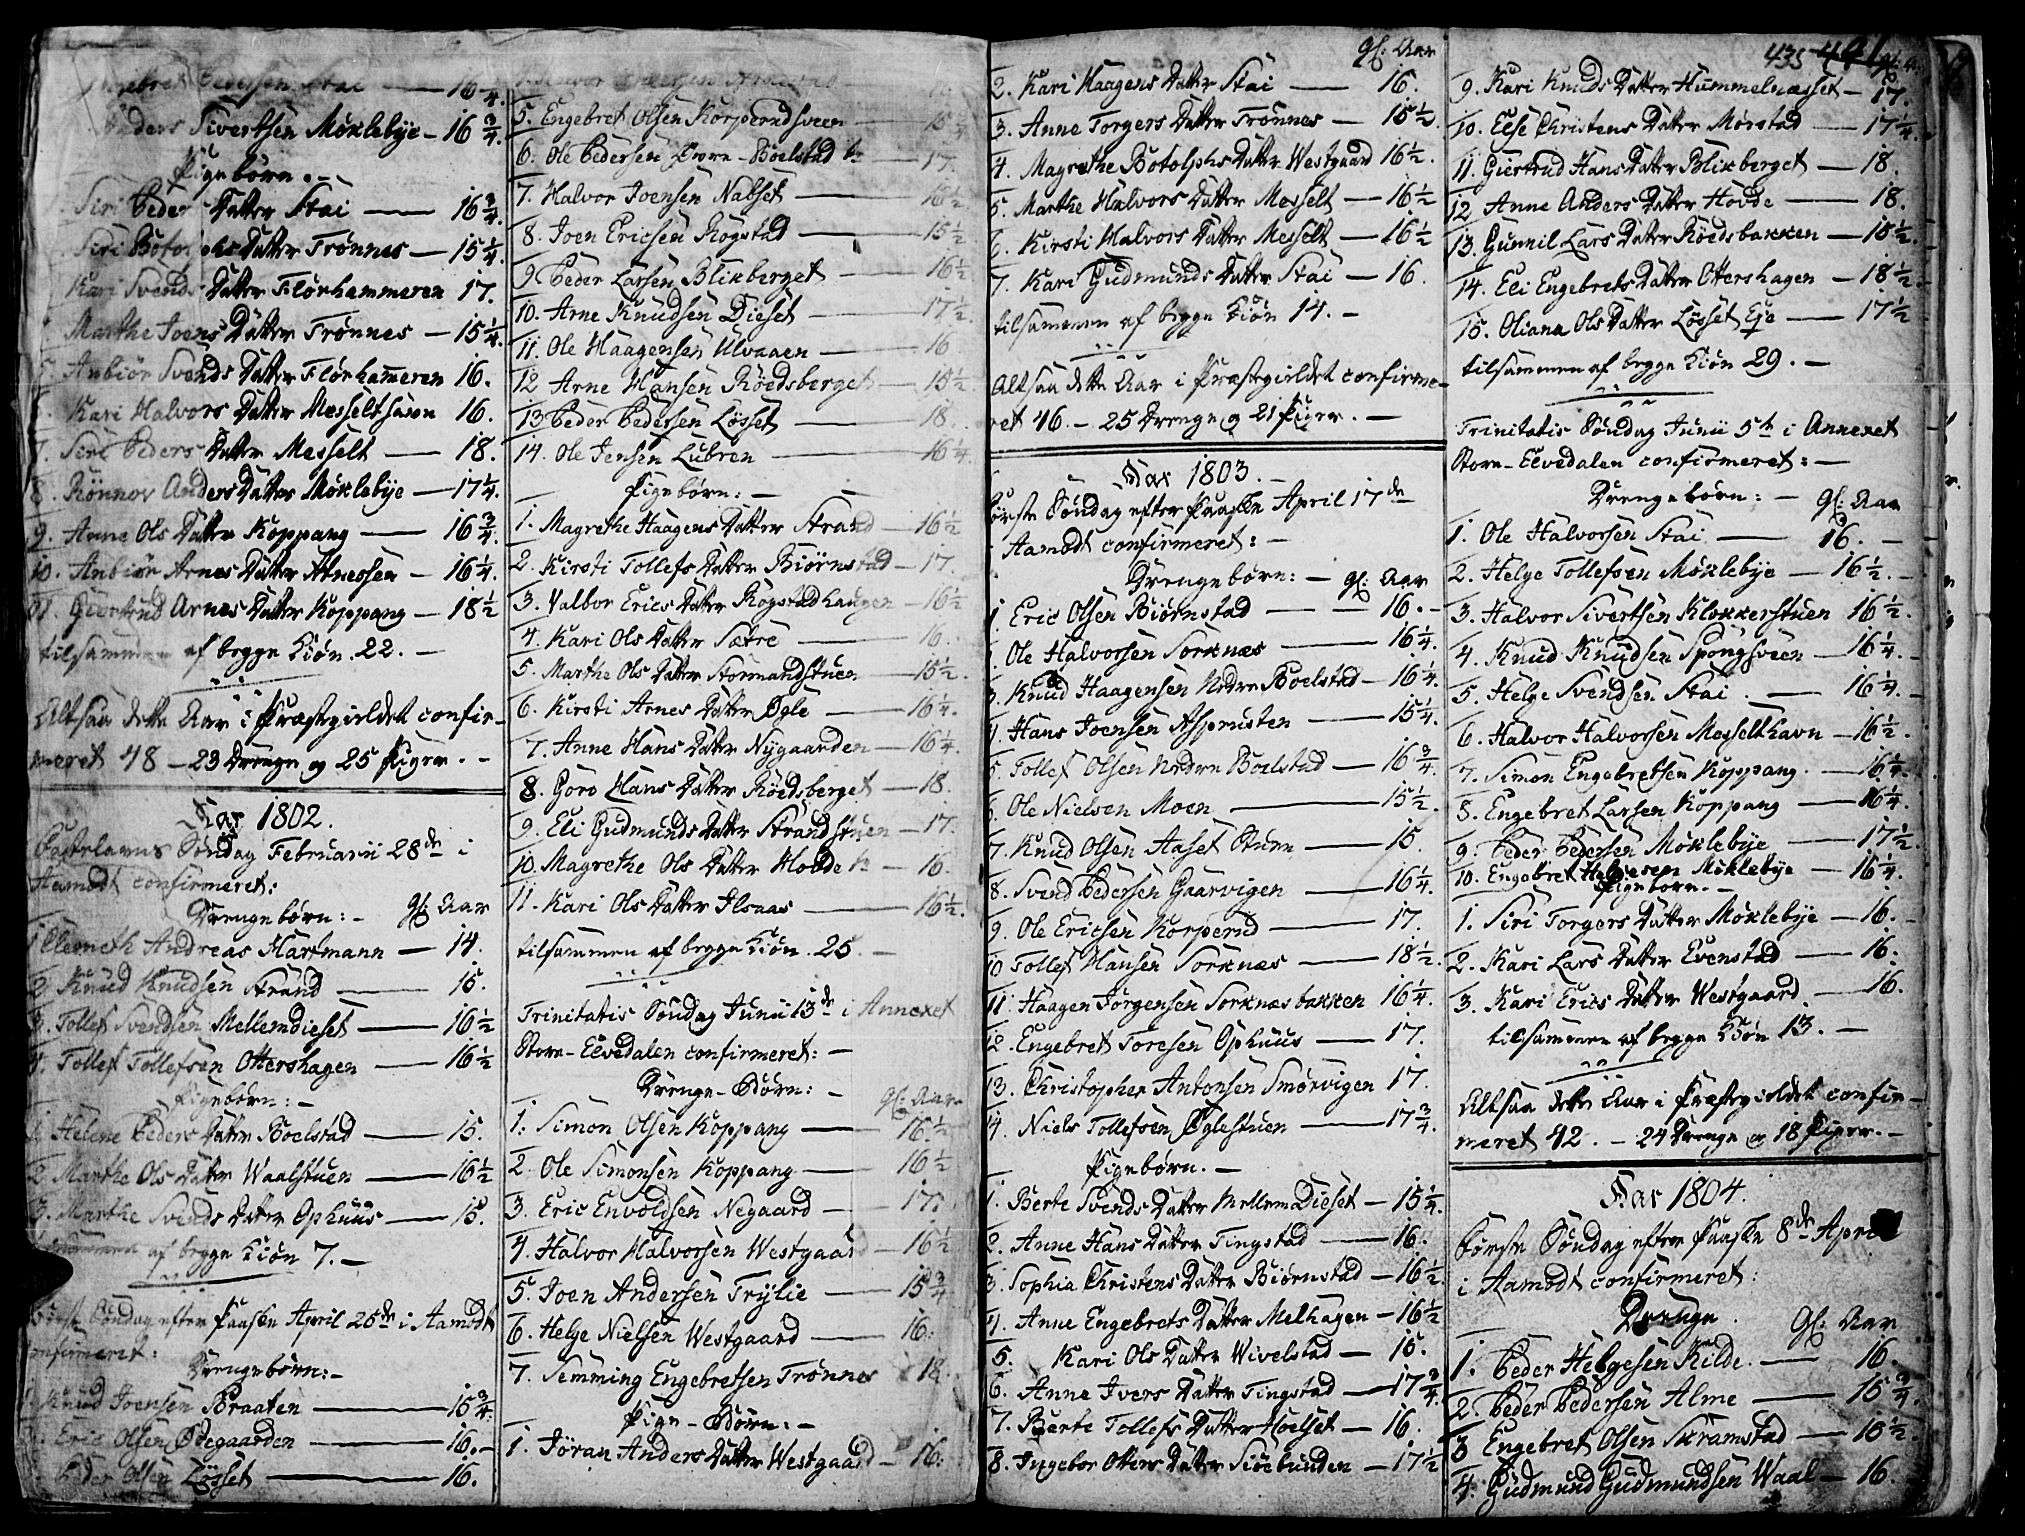 Pedersen Stai — 16 1/4.
Anders Sivertsen Möklebÿe — 16 3/4.
Pigebørn. —
Siri Peders Datter Stai — 16 3/4.
Siri Botolphs Datter Trønnes — 15 1/4.
Kari Svends Datter Flörhammeren 17.
Marthe Joens Datter Trønnes — 15 1/4.
5. Anbiör Svends Datter Flörham̅eren 16.
6. Kari Halvors Datter Messelt 16.
7. Siri Peders Datter Messelt — 18.
8. Rönnov Anders Datter Möklebÿe — 17 1/4.
9. Anne Ols Datter Koppang — 16 3/4.
10. Anbiör Arnes Datter Atneosen — 16 1/4.
11. Giertrud Arnes Datter Koppang — 18 1/2
tilsammen af begge Kiön. 22. —
Altsaa dette Aar i Præstegieldet confir-
meret 48 — 23 Drenge og 25 Piger. —
Aar 1802.
Fastelavns Söndag Februarii 28de i
Aamodt confirmeret:
Drengebørn: — gl: Aar
1 Clemeth Andreas Hartmann — 14.
2 Knud Knudsen Strand — 15.
3. Tollef Svendsen Mellemdieset — 16 1/2
4. Tollef Tollefsen Ottershagen — 16 1/2
Pigebørn: —
1. Helene Peders Datter Boelstad — 15.
2. Marthe Ols Datter Waalstuen — 16 1/2
3. Marthe Svends Datter Ophuus — 15.
tilsammen af begge Kiön 7. —
Første Söndag efter Paaske April 25de i Aamodt
confirmeret:
Drengebørn: —
1. Knud Joensen Braaten — 15 3/4.
2. Eric Olsen Ödegaarden — 16. —
3. Peder Olsen Lösset — 16.
5. Engebret Olsen Korperudsveen — 15 3/4
6. Ole Pedersen Boelstad — 17
7. Halvor Joensen Nabset — 16 1/2
8. Joen Ericsen Rogstad — 15 1/2
9. Peder Larsen Blikberget — 16 1/2
10. Arne Knudsen Dieset — 17 1/2
11. Ole Haagensen Ulvaaen — 16
12 Arne Hansen Röedsberget — 15 1/2
13 Peder Pedersen Lösset — 18.
14. Ole Jensen Lubren — 16 1/4
Pigebørn: —
1. Magrethe Haagens Datter Strand — 16 1/2
2. Kirsti Tollefs Datter Biörnstad — 17.
3. Valbor Erics Datter Rogstadhaugen — 16 1/2
4. Kari Ols Datter Sætre — 16.
5. Marthe Ols Datter Stormandstuen — 15 1/2
6. Kirsti Arnes Datter Ögle — 16 1/4.
7. Anne Hans Datter Nÿgaarden — 16 1/4.
8. Goro Hans Datter Röedsberget — 18.
9. Eli Gudmunds Datter Strandstuen — 17.
10. Magrethe Ols Datter — 16.
11. Kari Ols Datter — 16 1/2.
tilsammen af begge Kiön. 25. —
Trinitatis Söndag Junii 13de i Annexet
Store-Elvedalen confirmeret: —
Drenge-Börn: — gl: Aar
1. Simon Olsen Koppang — 16 1/2
2. Ole Simonsen Koppang — 16 1/2
3. Eric Envoldsen Negaard — 17.
4. Halvor Halvorsen Westgaard — 16 1/2
5. Joen Andersen Trÿlie — 15 3/4
6. Helge Nielsen Westgaard — 16.
7. Semming Engebretsen Trønnes 18.
Pige-Börn: —
1. Jöran Anders Datter Westgaard — 16.
gl: Aar
2. Kari Haagens Datter Stai — 16.
3. Anne Torgers Datter Trönnes — 15 1/2.
4. Magrethe Botolphs Datter Westgaard 16 1/2.
5. Marthe Halvors Datter Messelt — 16 1/2
6. Kirsti Halvors Datter Messelt — 16 1/2
7. Kari Gudmunds Datter Stai — 16.
tilsammen af begge Kiön 14. —
Altsaa dette Aar i Præstegieldet confirme-
ret 46. — 25 Drenge og 21 Piger. —
Aar 1803. —
Første Söndag efter Paaske April 17de
i Aamodt confirmeret: —
Drengebörn: — gl: Aar
1 Eric Olsen Biörnstad — 16. —
2. Ole Halvorsen Sorknæs — 16 1/4
3. Knud Haagensen Nedre Boelstad — 16 1/4.
4 Hans Joensen Asprusten — 15 1/4.
5. Tollef Olsen Nedre Boelstad — 16 3/4.
6. Ole Nielsen Moen — 15 1/2.
7. Knud Olsen Aaset — 15.
8. Svend Pedersen Gaarvigen — 16 1/4.
9. Ole Ericsen Korperud — 17.
10 Tollef Hansen Sorknæs — 18 1/2.
11. Haagen Jörgensen Sorknæsbakken 16 1/4.
12. Engebret Toresen Ophuus — 17.
13. Christopher Antonsen Smörvigen 17.
14. Niels Tollefsen Öglestuen — 17 3/4.
Pigebørn. —
1. Berte Svends Datter Mellem Dieset — 15 1/4.
2. Anne Hans Datter Tingstad — 16.
3. Sophia Christens Datter Biørnstad — 16 1/2.
4. Anne Engebrets Datter Melhagen — 16 1/2
5. Kari Ols Datter Wivelstad — 16.
6. Anne Ivers Datter Tingstad — 17 3/4.
7. Berte Tollefs Datter Hoelset — 16.
8. Ingebor Otters Datter Siöebunden — 17 1/2
435 441 gl: A.
9. Kari Knuds Datter Hummelnæsset — 17.
10. Else Christens Datter Morstad — 17 1/4.
11. Giertrud Hans Datter Blikberget — 18.
12 Anne Anders Datter Hovde — 18.
13. Gunnil Lars Datter Röedsbakken — 15 1/2.
14. Eli Engebrets Datter Ottershagen — 18 1/2.
15. Oliana Ols Datter Lösset Eje — 17 1/2
tilsammen af begge Kiön 29. —
Trinitatis Söndag Junii 5te i Annexet
Store-Elvedalen confirmeret: —
Drengebörn: — gl: Aar
1. Ole Halvorsen Stai — 16. —
2. Helge Tollefsen Möklebÿe — 16 1/2. —
3. Halvor Sivertsen Klokkerstuen 16 1/2.
4. Knud Knudsen Spongsveen — 16 1/4.
5. Helge Svendsen Stai. — 16 1/4.
6. Halvor Halvorsen Messelthavn — 16 1/2.
7. Simon Engebretsen Koppang. — 16 1/4.
8. Engebret Larsen Koppang — 16 1/4.
9. Peder Pedersen Möklebÿe — 17 1/2
10. Engebret Helgesen Möklebÿe — 16 1/4.
Pigebørn. —
1. Siri Torgers Datter Möklebÿe — 16.
2. Kari Lars Datter Evenstad — 16.
3. Kari Erics Datter Westgaard. — 16.
tilsammen af begge Kiön 13. —
Altsaa dette Aar i Præstegieldet confir-
meret 42. — 24 Drenge og 18 Piger. —
Aar 1804.
Første Söndag efter Paaske 8de April
i Aamodt confirmeret:
Drenge. gl: Aar
1. Peder Helgesen Kilde. — 16.
2. Peder Pedersen Alme — 15 3/4.
3 Engebret Olsen Skramstad — 15 1/2.
4. Gudmund Gudmundsen Waal — 16.